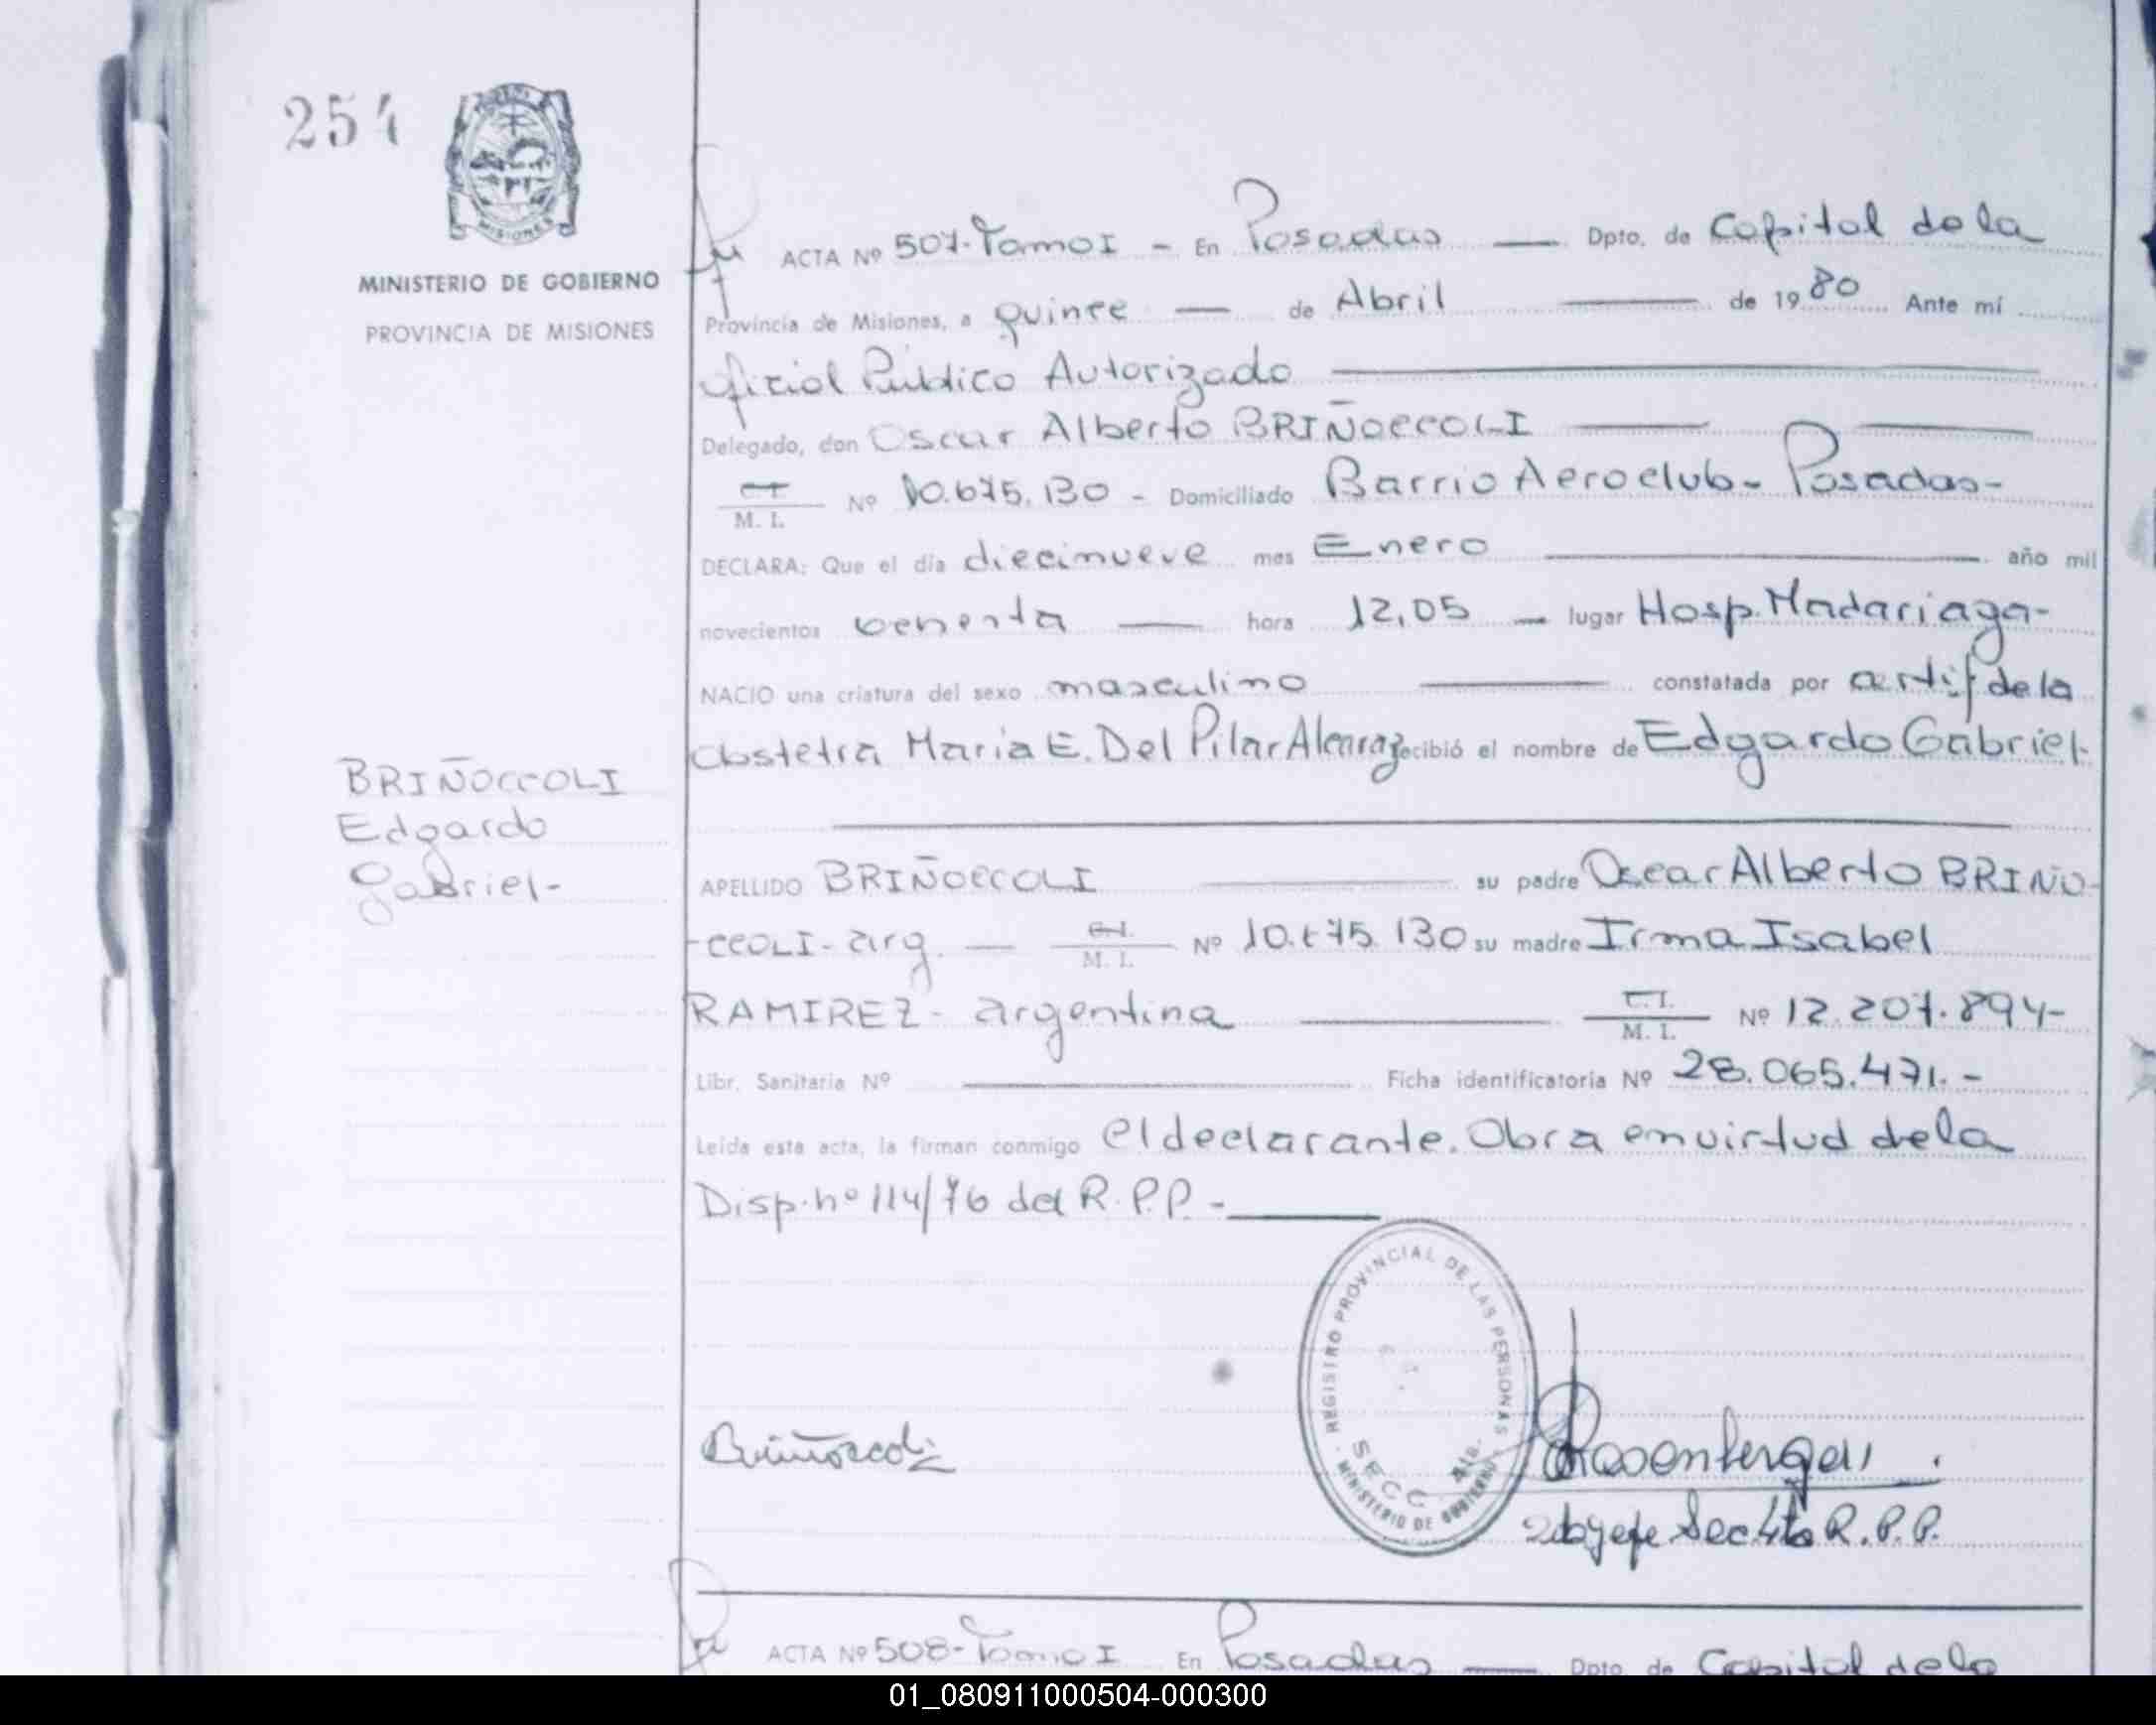 254
MISIONES
MINISTERIO DE GOBIERNO
PROVINCIA DE MISIONES
ACTA Nº 507-Tomo I - En Posadas — Dpto. de Capital de la
Provincia de Misiones, a quince — de Abril — de 1980 Ante mí
Oficial Público Autorizado
Delegado, don Oscar Alberto BRIÑOCCOLI
C.I. M. I. Nº 10.675.130 - Domiciliado Barrio Aeroclub- Posadas-
DECLARA: Que el día diecinueve mes Enero — año mil
novecientos ochenta — hora 12,05 — lugar Hosp. Madariaga-
NACIO una criatura del sexo masculino — constatada por certif de la
Obstetra Maria E. Del Pilar Alcaraz recibió el nombre de Edgardo Gabriel-
BRIÑOCCOLI
Edgardo
Gabriel-
APELLIDO BRIÑOCCOLI — su padre Oscar Alberto BRIÑO-
-CCOLI- arg. — C.I. M. I. Nº 10.675.130 su madre Irma Isabel
RAMIREZ- argentina — C.I. M. I. Nº 12.207.894-
Libr. Sanitaria Nº — Ficha identificatoria Nº 28.065.471.-
Leída esta acta, la firman conmigo el declarante. Obra en virtud de la
Disp. nº 114/76 del R.P.P.-
REGISTRO PROVINCIAL DE LAS PERSONAS
SECC. 4ta.
MINISTERIO DE GOBIERNO
Briñoccoli
Rosenberger
Subjefe Sec 4ta R.P.P.
ACTA Nº 508-Tomo I En Posadas — Dpto. de Capital de la
01_080911000504-000300